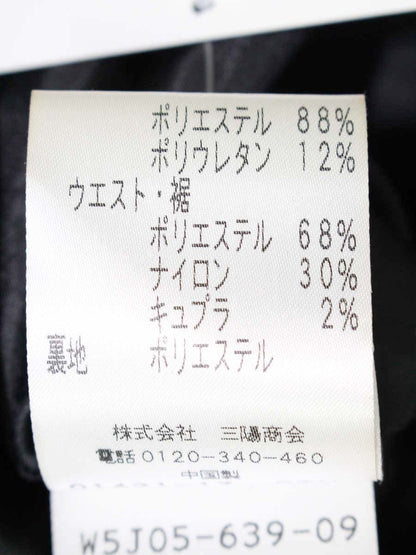 ポリエステル 88%
ポリウレタン 12%
ウエスト・裾
ポリエステル 68%
ナイロン 30%
キュプラ 2%
裏地 ポリエステル
株式会社 三陽商会
電話0120-340-460
中国製
W5J05-639-09